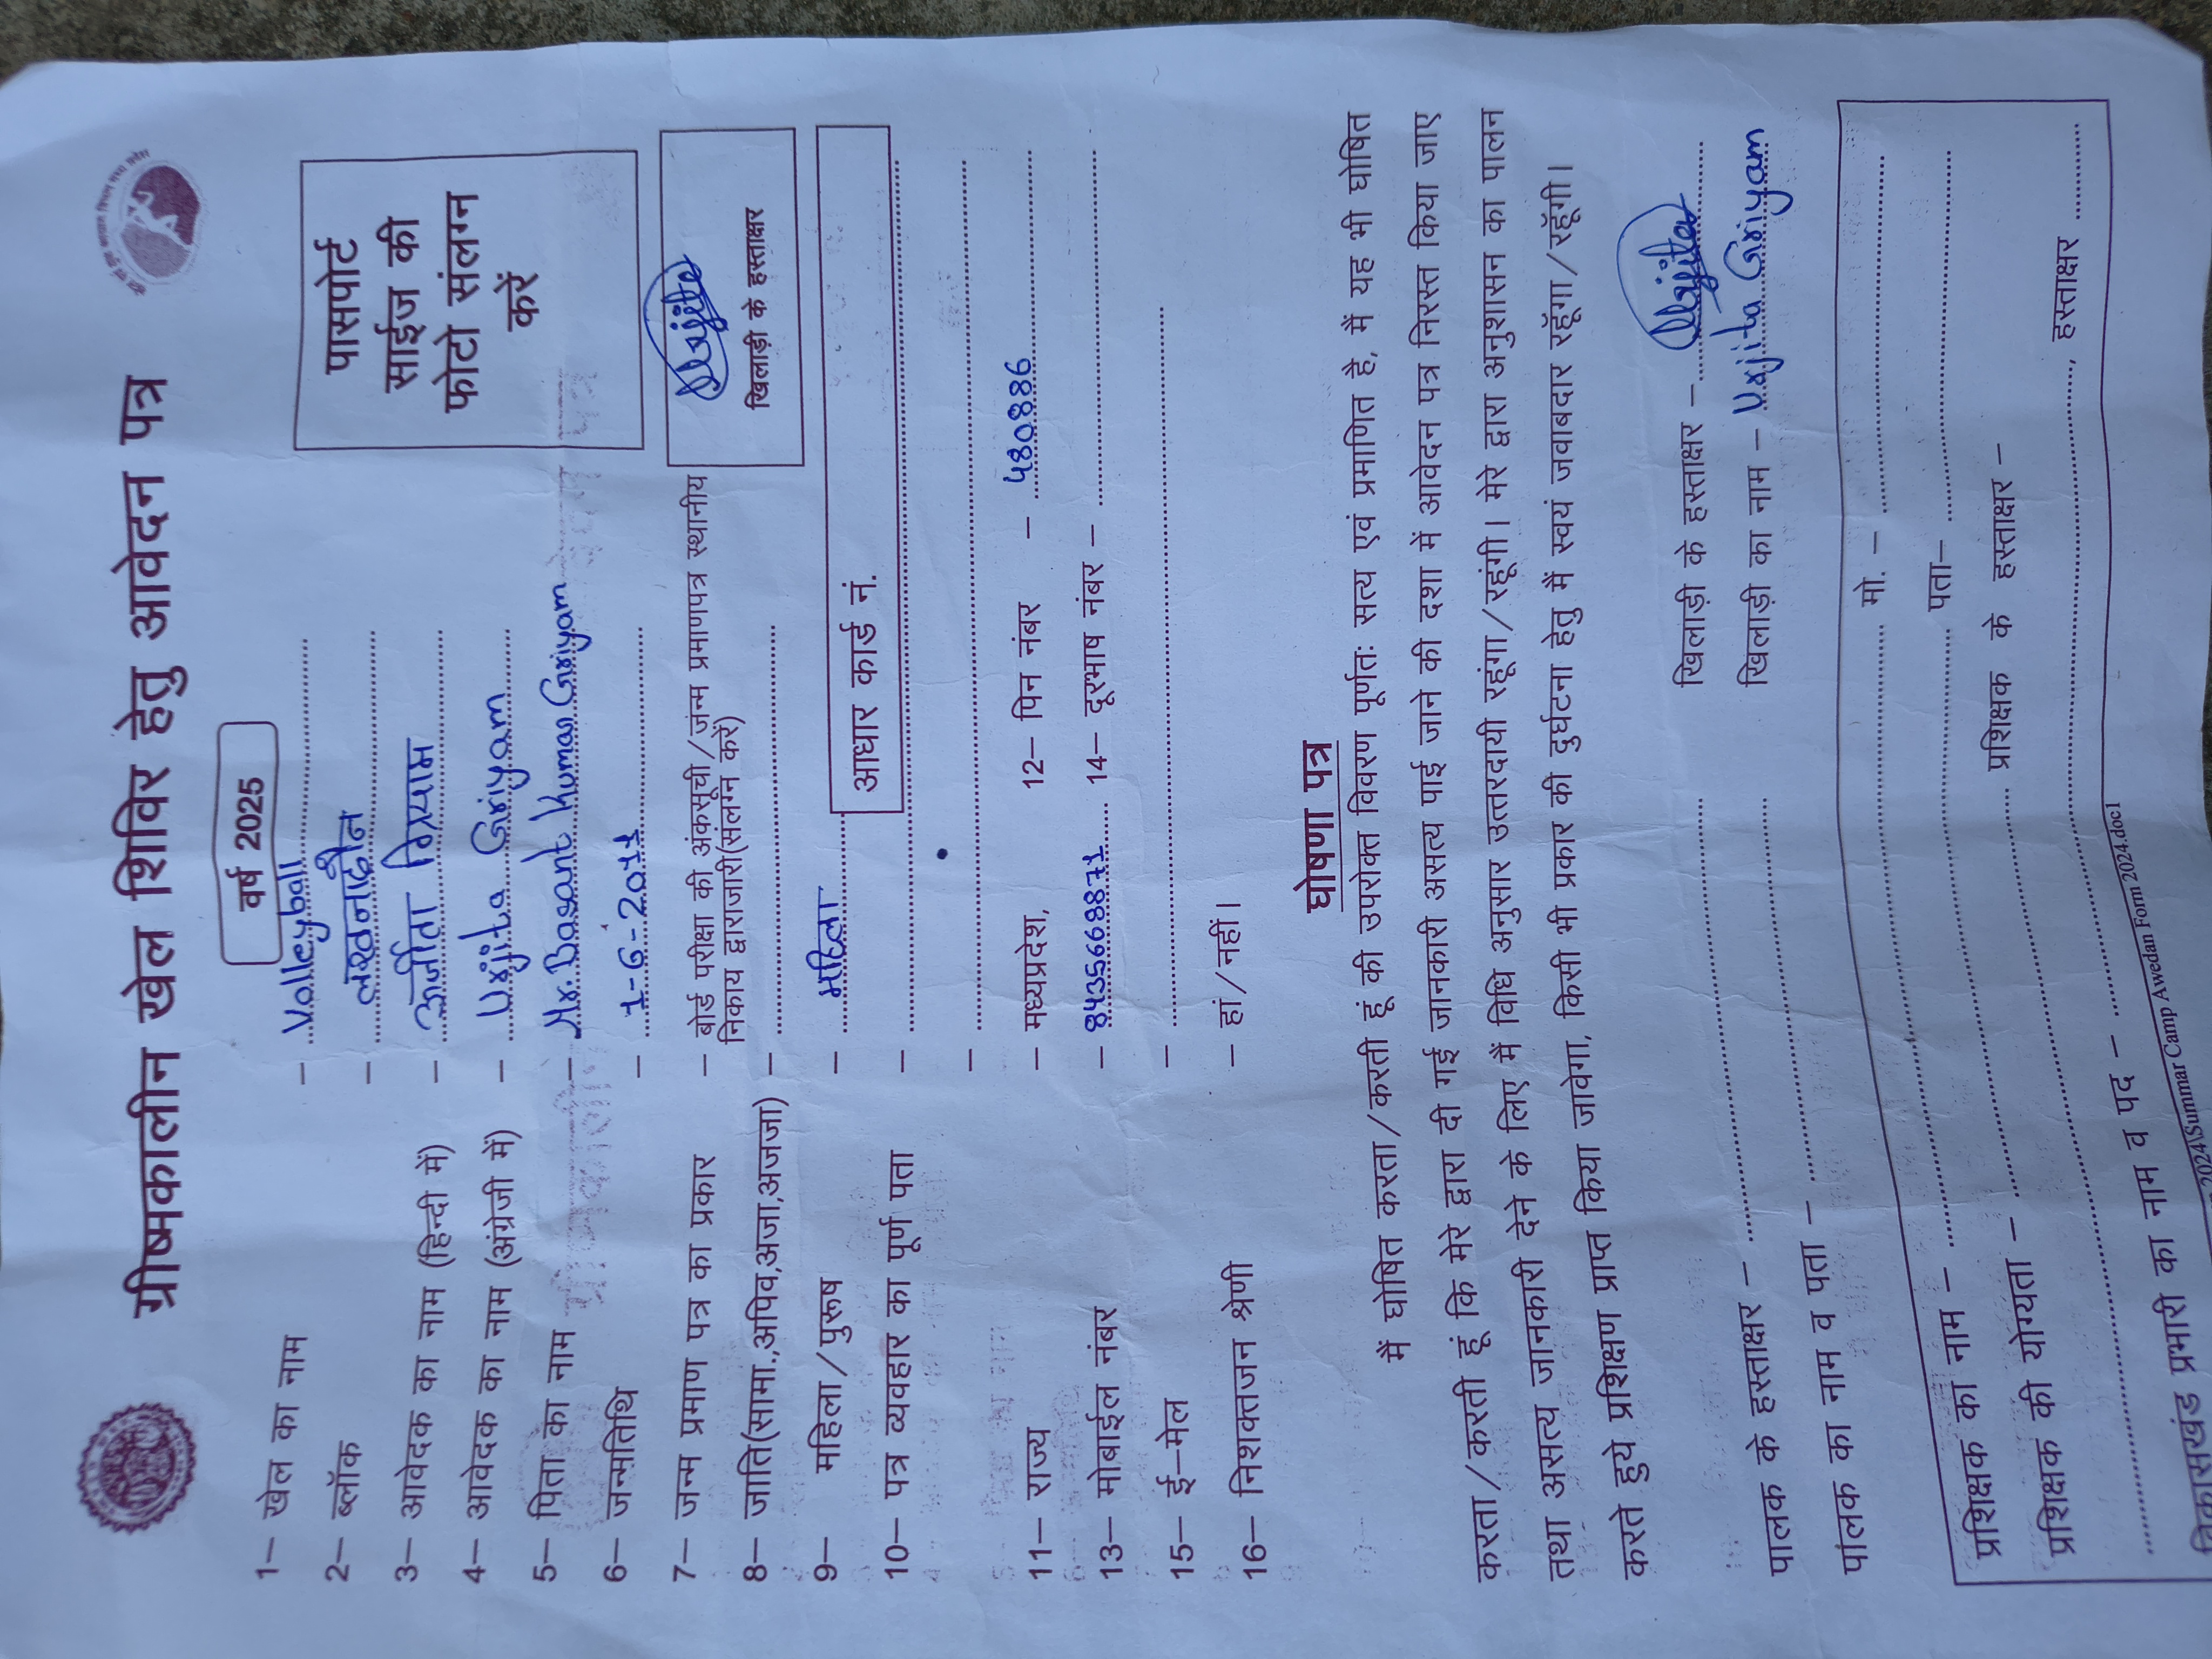 ग्रीष्मकालीन खेल शिविर हेतु आवेदन पत्र
वर्ष 2025
पासपोर्ट
साईज की
फोटो संलग्न
करें
1– खेल का नाम – Volleyball
2– ब्लॉक – लखनादौन
3– आवेदक का नाम (हिन्दी में) – ऊर्जीता ग्रियाम
4– आवेदक का नाम (अंग्रेजी में) – Urjita Griyam
5– पिता का नाम – Mr. Basant Kumar Griyam
6– जन्मतिथि – 1-6-2011
7– जन्म प्रमाण पत्र का प्रकार – बोर्ड परीक्षा की अंकसूची/जन्म प्रमाणपत्र स्थानीय
निकाय द्वाराजारी(संलग्न करें)
Urjita
खिलाड़ी के हस्ताक्षर
8– जाति(सामा.,अपिव,अजा,अजजा) –
9– महिला/पुरूष – महिला
आधार कार्ड नं.
10– पत्र व्यवहार का पूर्ण पता –
–
11– राज्य – मध्यप्रदेश, 12– पिन नंबर – 480886
13– मोबाईल नंबर – 8435668871 14– दूरभाष नंबर –
15– ई–मेल –
16– निशक्तजन श्रेणी – हां/नहीं।
घोषणा पत्र
मैं घोषित करता/करती हूं की उपरोक्त विवरण पूर्णतः सत्य एवं प्रमाणित है, मैं यह भी घोषित
करता/करती हूं कि मेरे द्वारा दी गई जानकारी असत्य पाई जाने की दशा में आवेदन पत्र निरस्त किया जाए
तथा असत्य जानकारी देने के लिए मैं विधि अनुसार उत्तरदायी रहूंगा/रहूंगी। मेरे द्वारा अनुशासन का पालन
करते हुये प्रशिक्षण प्राप्त किया जावेगा, किसी भी प्रकार की दुर्घटना हेतु मैं स्वयं जवाबदार रहूॅगा/रहूॅगी।
खिलाड़ी के हस्ताक्षर – Urjita
पालक के हस्ताक्षर – खिलाड़ी का नाम – Urjita Griyam
पालक का नाम व पता –
प्रशिक्षक का नाम – मो. –
प्रशिक्षक की योग्यता – पता–
प्रशिक्षक के हस्ताक्षर –
विकासखंड प्रभारी का नाम व पद – , हस्ताक्षर
2024\Summar Camp Awedan Form 2024.doc1